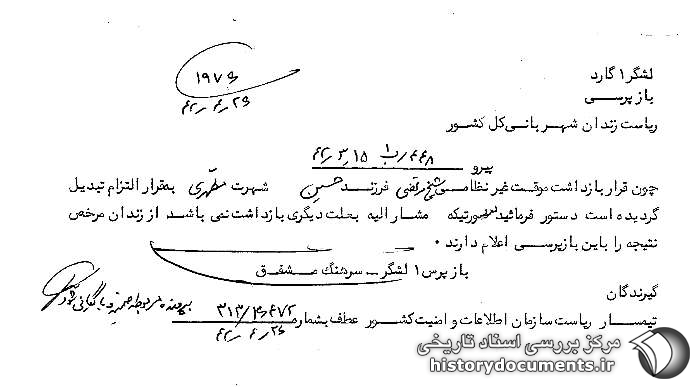 لشگر ۱ گارد
بازپرسی
۱۹۷۶
۴۲٫۴٫۲۶
ریاست زندان شهربانی کل کشور
پیرو ۴۴۸/ب۱ ۴۲٫۳٫۱۵
چون قرار بازداشت موقت غیرنظامی شیخ مرتضی فرزند حسین شهرت مطهری به قرار التزام تبدیل
گردیده است دستور فرمائید درصورتیکه مشارالیه بعلت دیگری بازداشت نمی باشد از زندان مرخص
نتیجه را باین بازپرسی اعلام دارند .
بازپرس ۱ لشگر - سرهنگ مشفق
گیرندگان
تیمسار ریاست سازمان اطلاعات و امنیت کشور عطف بشماره ۳۱۳/۴۶۷۲
۴۲٫۴٫۲۶
پرونده مربوطه ضمیمه و بایگانی شود
مرکز بررسی اسناد تاریخی
historydocuments.ir